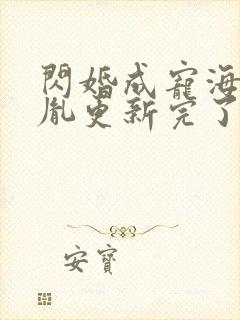 閃婚成寵海
胤更新完了
安寶